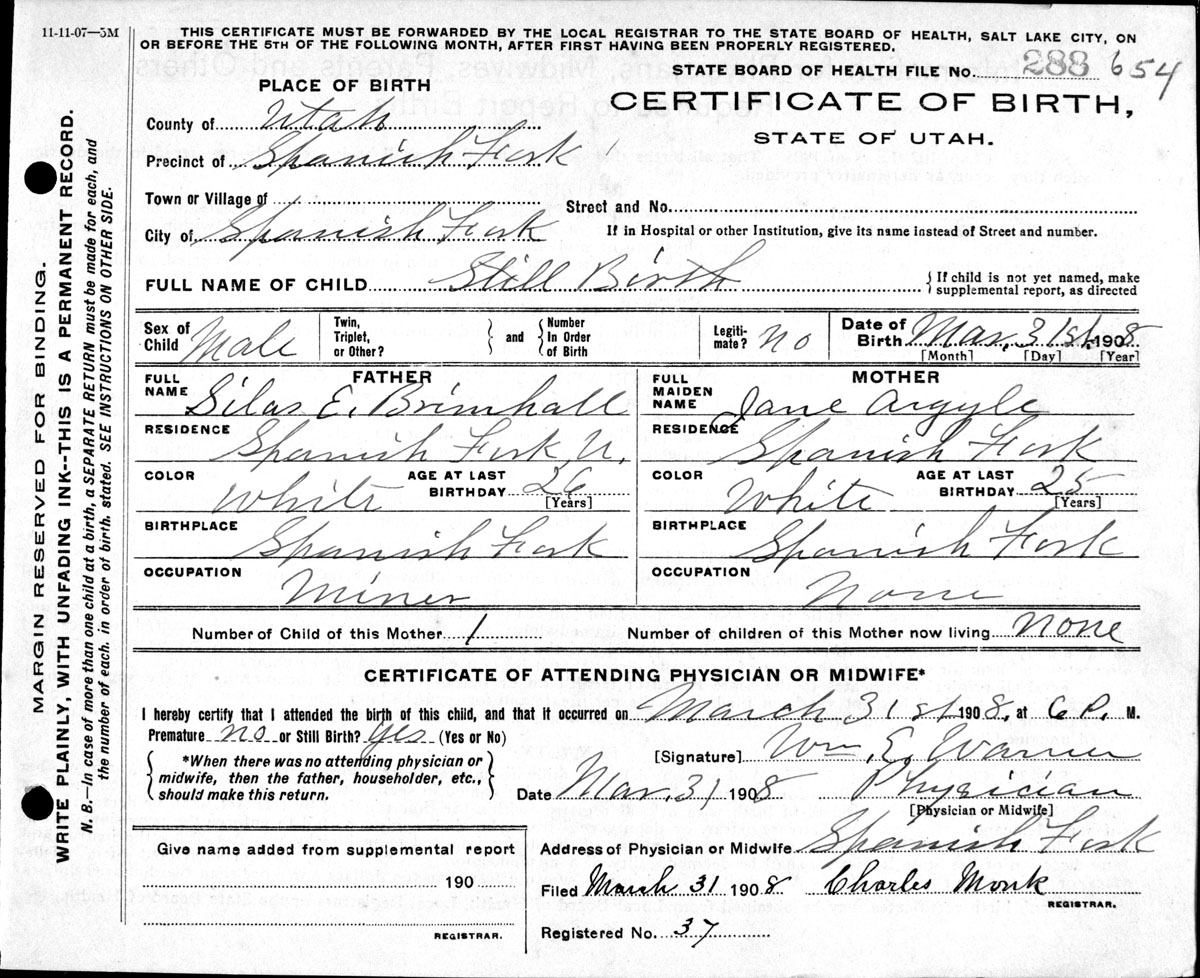 11-11-07—5M
THIS CERTIFICATE MUST BE FORWARDED BY THE LOCAL REGISTRAR TO THE STATE BOARD OF HEALTH, SALT LAKE CITY, ON
OR BEFORE THE 5TH OF THE FOLLOWING MONTH, AFTER FIRST HAVING BEEN PROPERLY REGISTERED.
STATE BOARD OF HEALTH FILE No. 288 654
PLACE OF BIRTH
CERTIFICATE OF BIRTH,
STATE OF UTAH.
County of Utah
Precinct of Spanish Fork
Town or Village of
Street and No.
City of Spanish Fork
If in Hospital or other Institution, give its name instead of Street and number.
FULL NAME OF CHILD Still Birth
{If child is not yet named, make
supplemental report, as directed
Sex of Child Male
Twin, Triplet, or Other?
and
Number In Order of Birth
Legiti-mate? no
Date of Birth Mar. 31st 1908
[Month] [Day] [Year]
FATHER
FULL NAME Silas E. Brimhall
RESIDENCE Spanish Fork U.
COLOR White
AGE AT LAST BIRTHDAY 26
[Years]
BIRTHPLACE Spanish Fork
OCCUPATION Miner
MOTHER
FULL MAIDEN NAME Jane Argyle
RESIDENCE Spanish Fork
COLOR White
AGE AT LAST BIRTHDAY 25
[Years]
BIRTHPLACE Spanish Fork
OCCUPATION None
Number of Child of this Mother 1
Number of children of this Mother now living none
CERTIFICATE OF ATTENDING PHYSICIAN OR MIDWIFE*
I hereby certify that I attended the birth of this child, and that it occurred on March 31st 1908, at 6 P. M.
Premature no or Still Birth? yes (Yes or No)
[Signature] Wm. E. Warner
*When there was no attending physician or
midwife, then the father, householder, etc.,
should make this return.
Date Mar. 31 1908 Physician
[Physician or Midwife]
Give name added from supplemental report
190
REGISTRAR.
Address of Physician or Midwife Spanish Fork
Filed March 31 1908 Charles Monk
REGISTRAR.
Registered No. 37
MARGIN RESERVED FOR BINDING.
WRITE PLAINLY, WITH UNFADING INK--THIS IS A PERMANENT RECORD.
N. B.—In case of more than one child at a birth, a SEPARATE RETURN must be made for each, and
the number of each, in order of birth, stated. SEE INSTRUCTIONS ON OTHER SIDE.